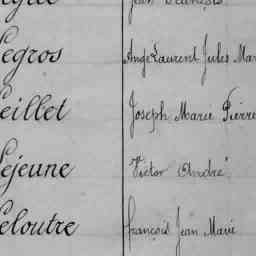 Legros Ange Laurent Jules Mar
Leillet Joseph Marie Pierre
Lejeune Victor André
Leloutre François Jean Marie